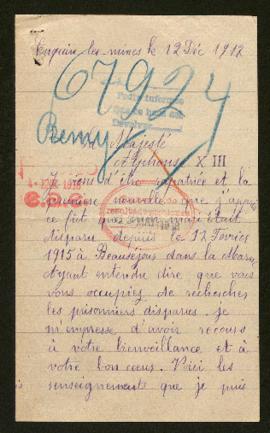 Enquin les mines le 12 Déc 1917
67924
Remy
Sa Majesté
Alphonse XIII
Je viens d'être rapatriée et la
première nouvelle que j'appris
ce fut que mon mari était
disparu depuis le 12 Février
1915 à Beauséjour dans la Marne
Ayant entendu dire que vous
vous occupiez de rechercher
les prisonniers disparus. Je
m'empresse d'avoir recours
à votre bienveillance et à
votre bon cœur. Voici les
renseignements que je puis